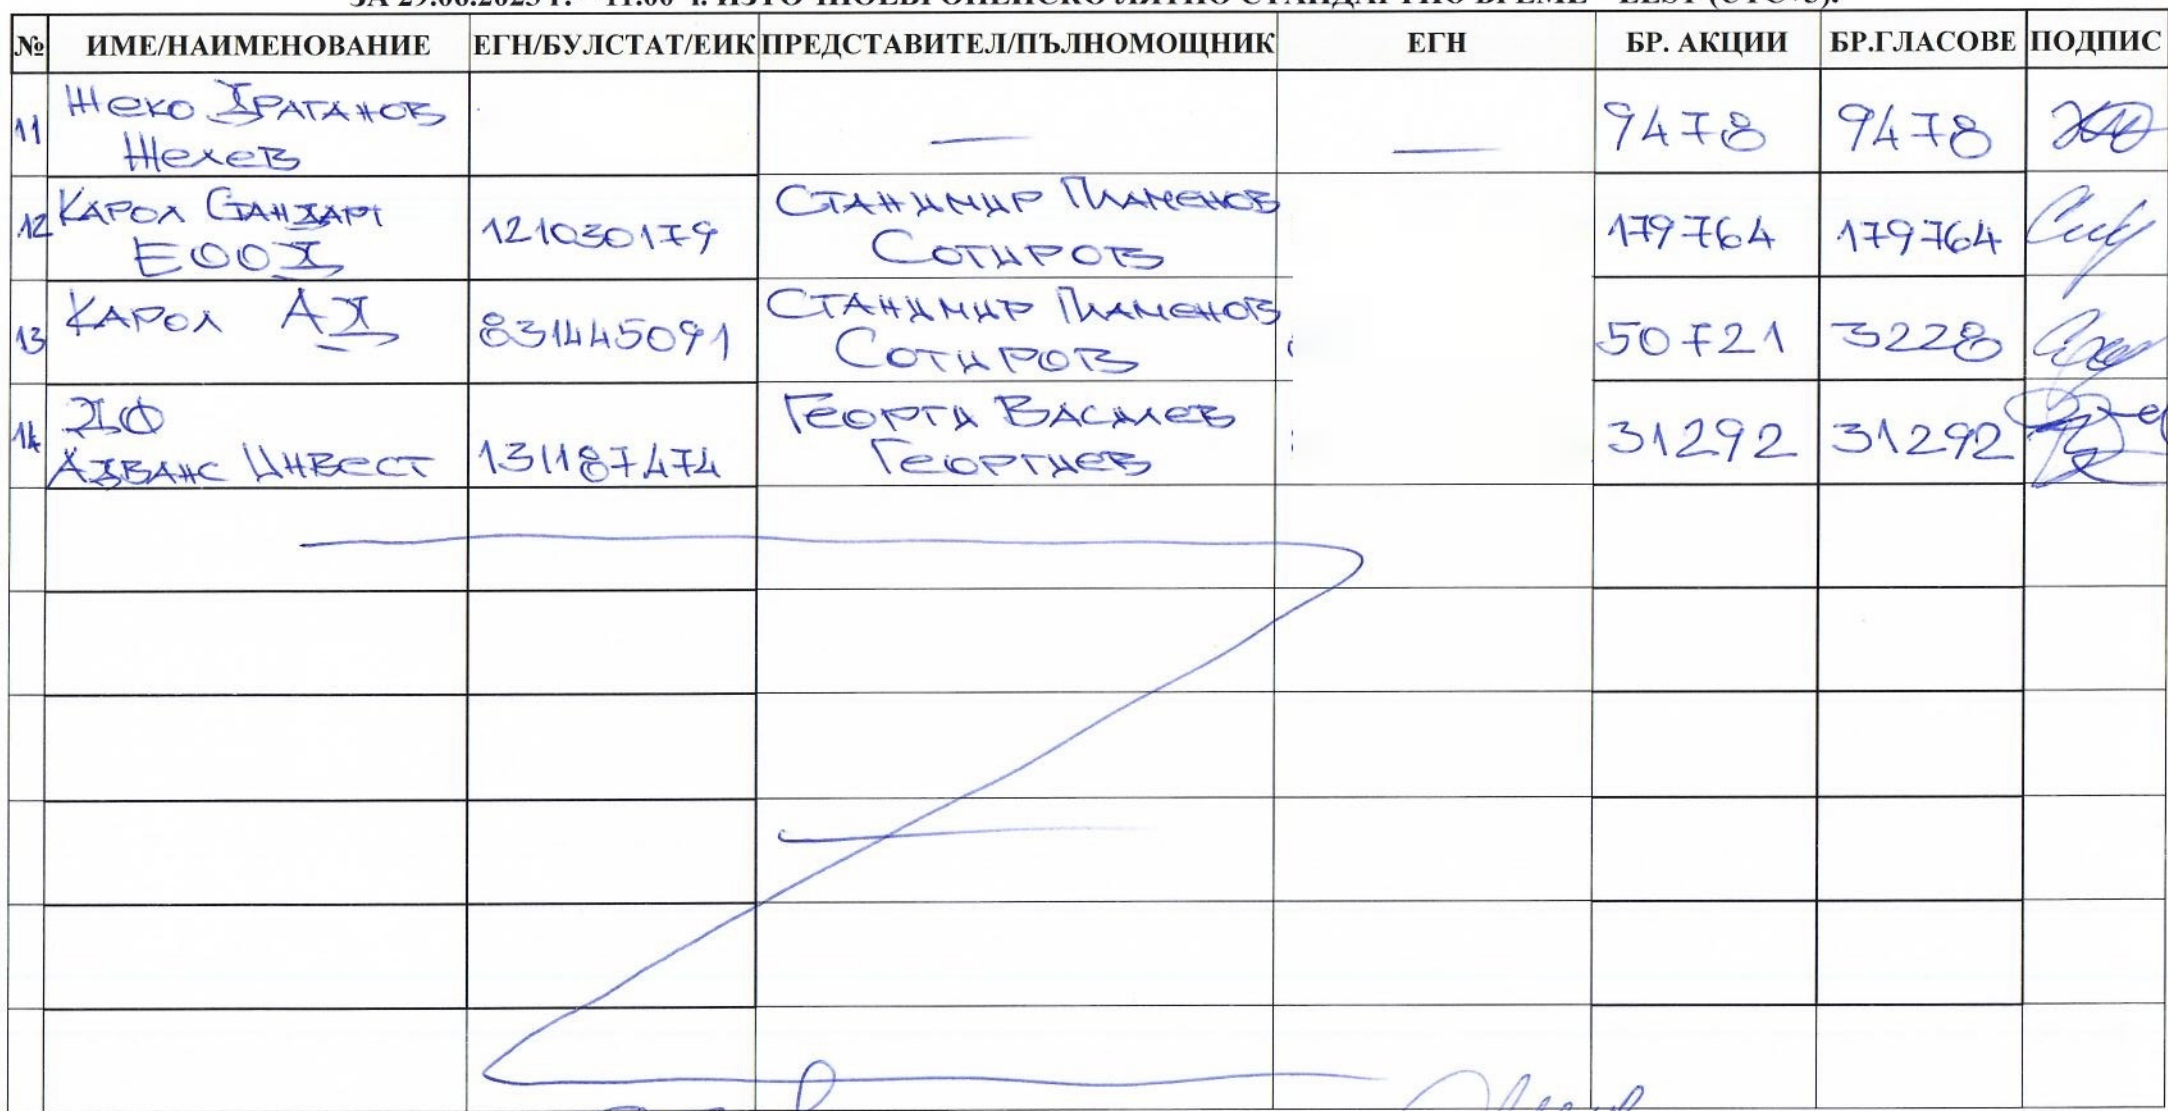 ЗА 29.06.2023 г. – 11.00 ч. ИЗТОЧНОЕВРОПЕЙСКО ЛЯТНО СТАНДАРТНО ВРЕМЕ – EEST (UTC+3).
№ ИМЕ/НАИМЕНОВАНИЕ ЕГН/БУЛСТАТ/ЕИК ПРЕДСТАВИТЕЛ/ПЪЛНОМОЩНИК ЕГН БР. АКЦИИ БР.ГЛАСОВЕ ПОДПИС
11 Жеко Драганов
Желев — — 9478 9478
12 Карол Стандарт
ЕООД 121030179 Станимир Пламенов
Сотиров 179764 179764
13 Карол АД 831445091 Станимир Пламенов
Сотиров 50721 3228
14 ДФ
Адванс Инвест 131187474 Георги Василев
Георгиев 31292 31292